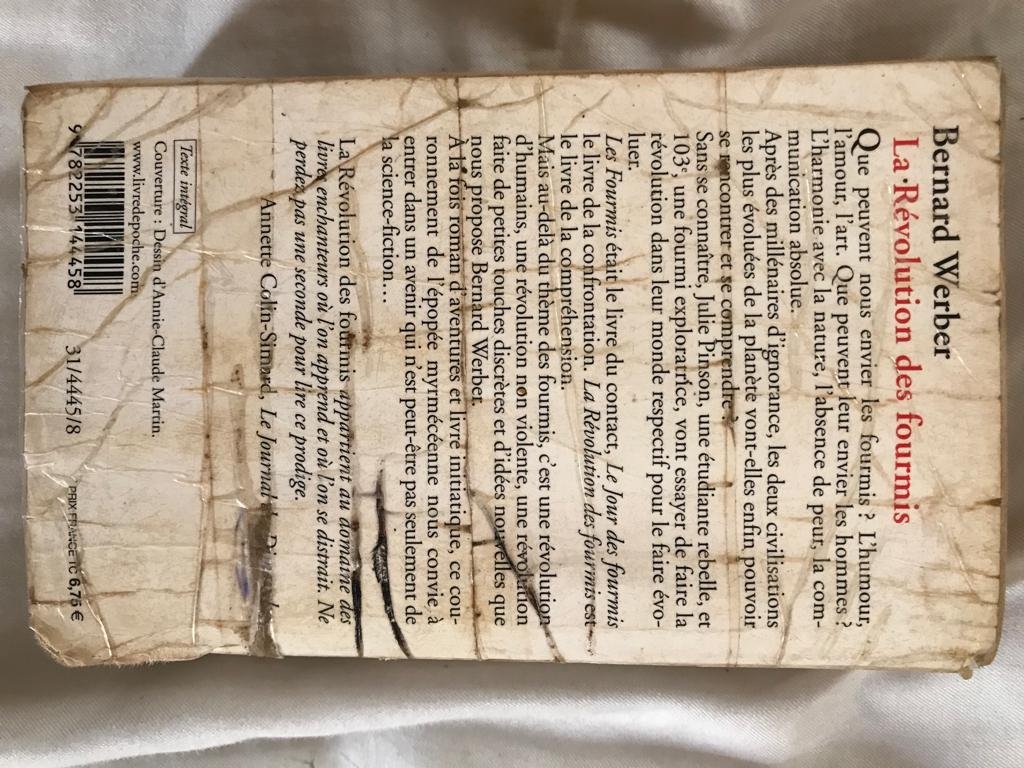 Bernard Werber
La Révolution des fourmis
Que peuvent nous envier les fourmis ? L'humour,
l'amour, l'art. Que peuvent leur envier les hommes ?
L'harmonie avec la nature, l'absence de peur, la com-
munication absolue.
Après des millénaires d'ignorance, les deux civilisations
les plus évoluées de la planète vont-elles enfin pouvoir
se rencontrer et se comprendre ?
Sans se connaître, Julie Pinson, une étudiante rebelle, et
103e, une fourmi exploratrice, vont essayer de faire la
révolution dans leur monde respectif pour le faire évo-
luer.
Les Fourmis était le livre du contact, Le Jour des fourmis
le livre de la confrontation. La Révolution des fourmis est
le livre de la compréhension.
Mais au-delà du thème des fourmis, c'est une révolution
d'humains, une révolution non violente, une révolution
faite de petites touches discrètes et d'idées nouvelles que
nous propose Bernard Werber.
A la fois roman d'aventures et livre initiatique, ce cou-
ronnement de l'épopée myrmécéenne nous convie à
entrer dans un avenir qui n'est peut-être pas seulement de
la science-fiction...
La Révolution des fourmis appartient au domaine des
livres enchanteurs où l'on apprend et où l'on se distrait. Ne
perdez pas une seconde pour lire ce prodige.
Annette Colin-Simard, Le Journal
Texte intégral
Couverture : Dessin d'Annie-Claude Martin.
www.livredepoche.com
9 782253 144458 31/4445/8 PRIX FRANCE TC 6,75 €